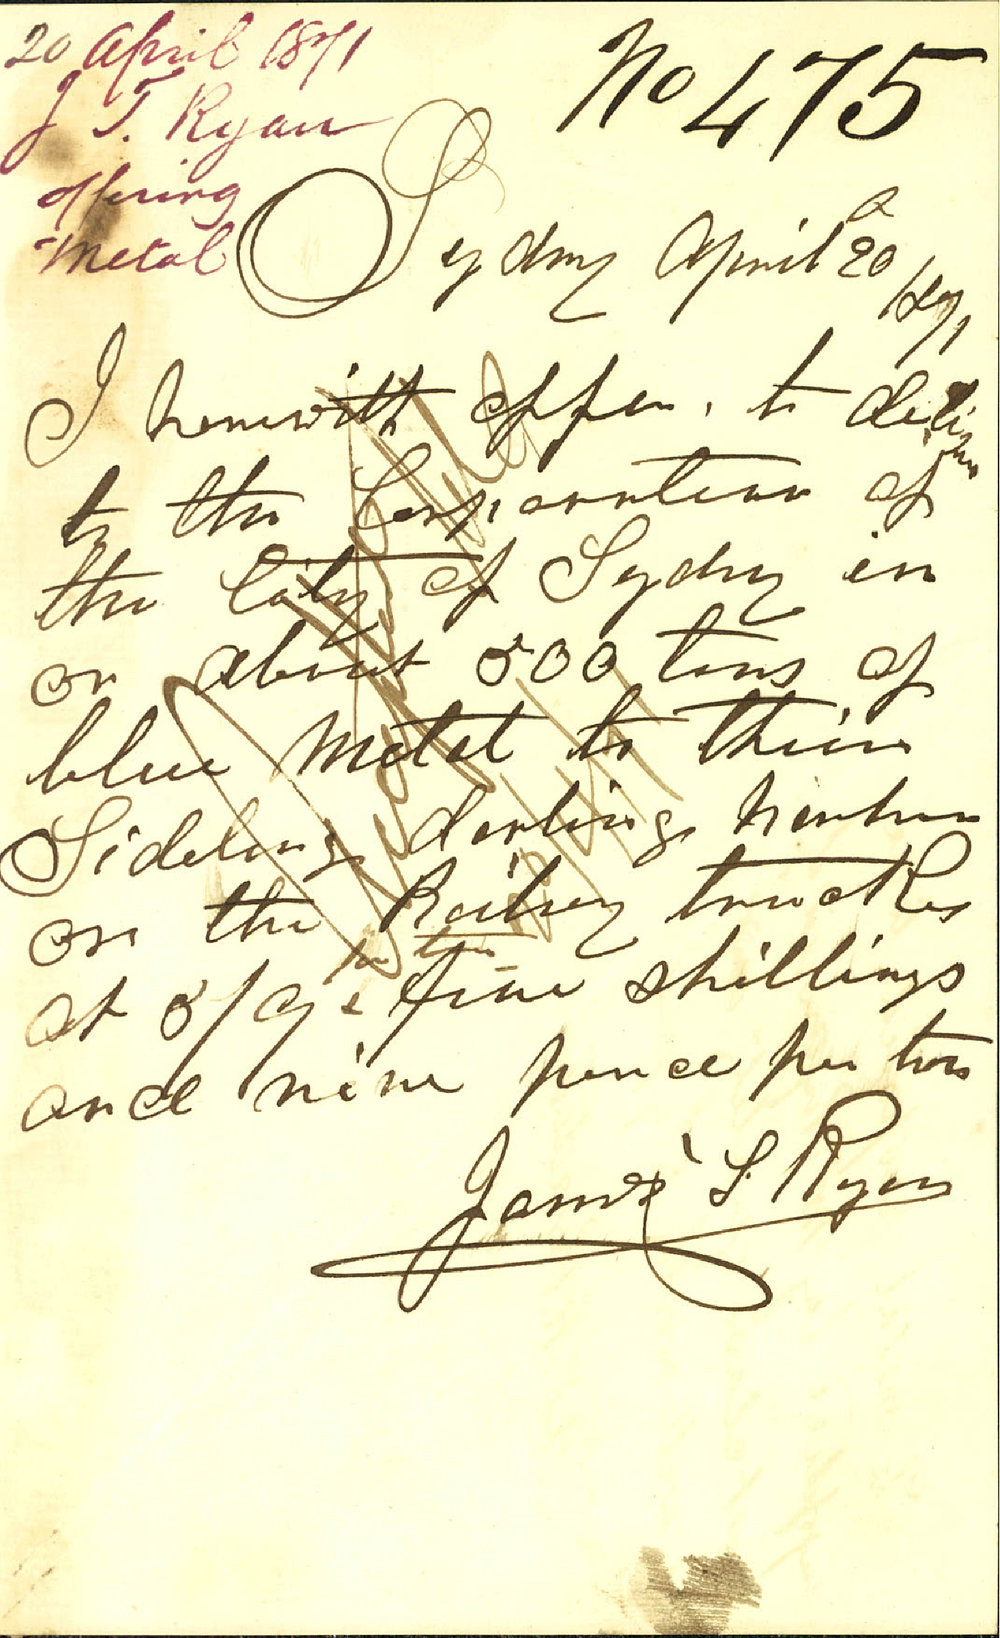 20 April 1871
J T. Ryan
offering
Metal
No 475
Sydney April 20
1871
I herewith offer. to deliver
to the Corporation of
the City of Sydney in
or about 500 tons of
blue Metal to their
Sideling darling harbur
on the Railwey truckes
at 5/9 five shillings
per ton
and nine pence per ton
James T. Ryan